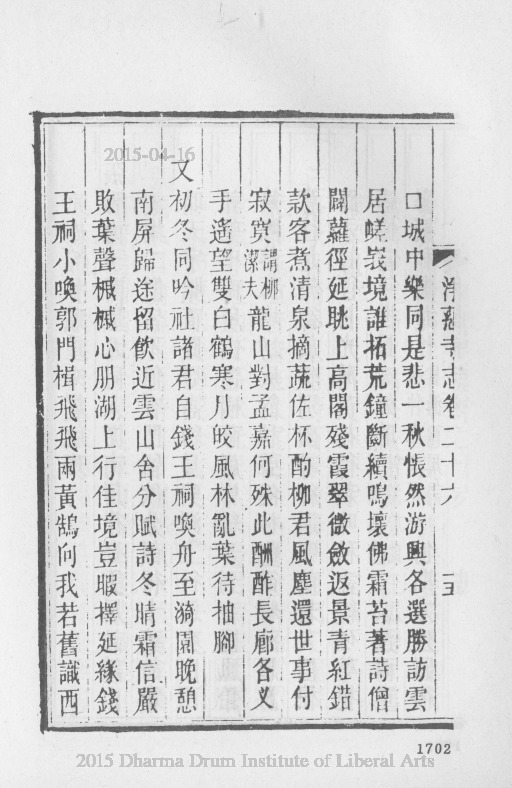 淨慈寺志卷二十六 十五
口城中樂同是悲一秋悵然游興各選勝訪雲
居嵯峩境誰拓荒鐘斷續鳴壞佛霜苔著詩僧
闢蘿徑延眺上高閣殘霞翠微斂返景青紅錯
款客煮清泉摘蔬佐杯酌柳君風塵還世事付
寂寞謂柳潔夫龍山對孟嘉何殊此酬酢長廊各叉
手遙望雙白鶴寒月皎風林亂葉待抽腳
又初冬同吟社諸君自錢王祠喚舟至漪園晚憩
南屏歸途留飲近雲山舍分賦詩冬晴霜信嚴
敗葉聲槭槭心朋湖上行佳境豈暇擇延緣錢
王祠小喚郭門楫飛飛兩黃鵠向我若舊識西
1702
2015-04-16
2015 Dharma Drum Institute of Liberal Arts